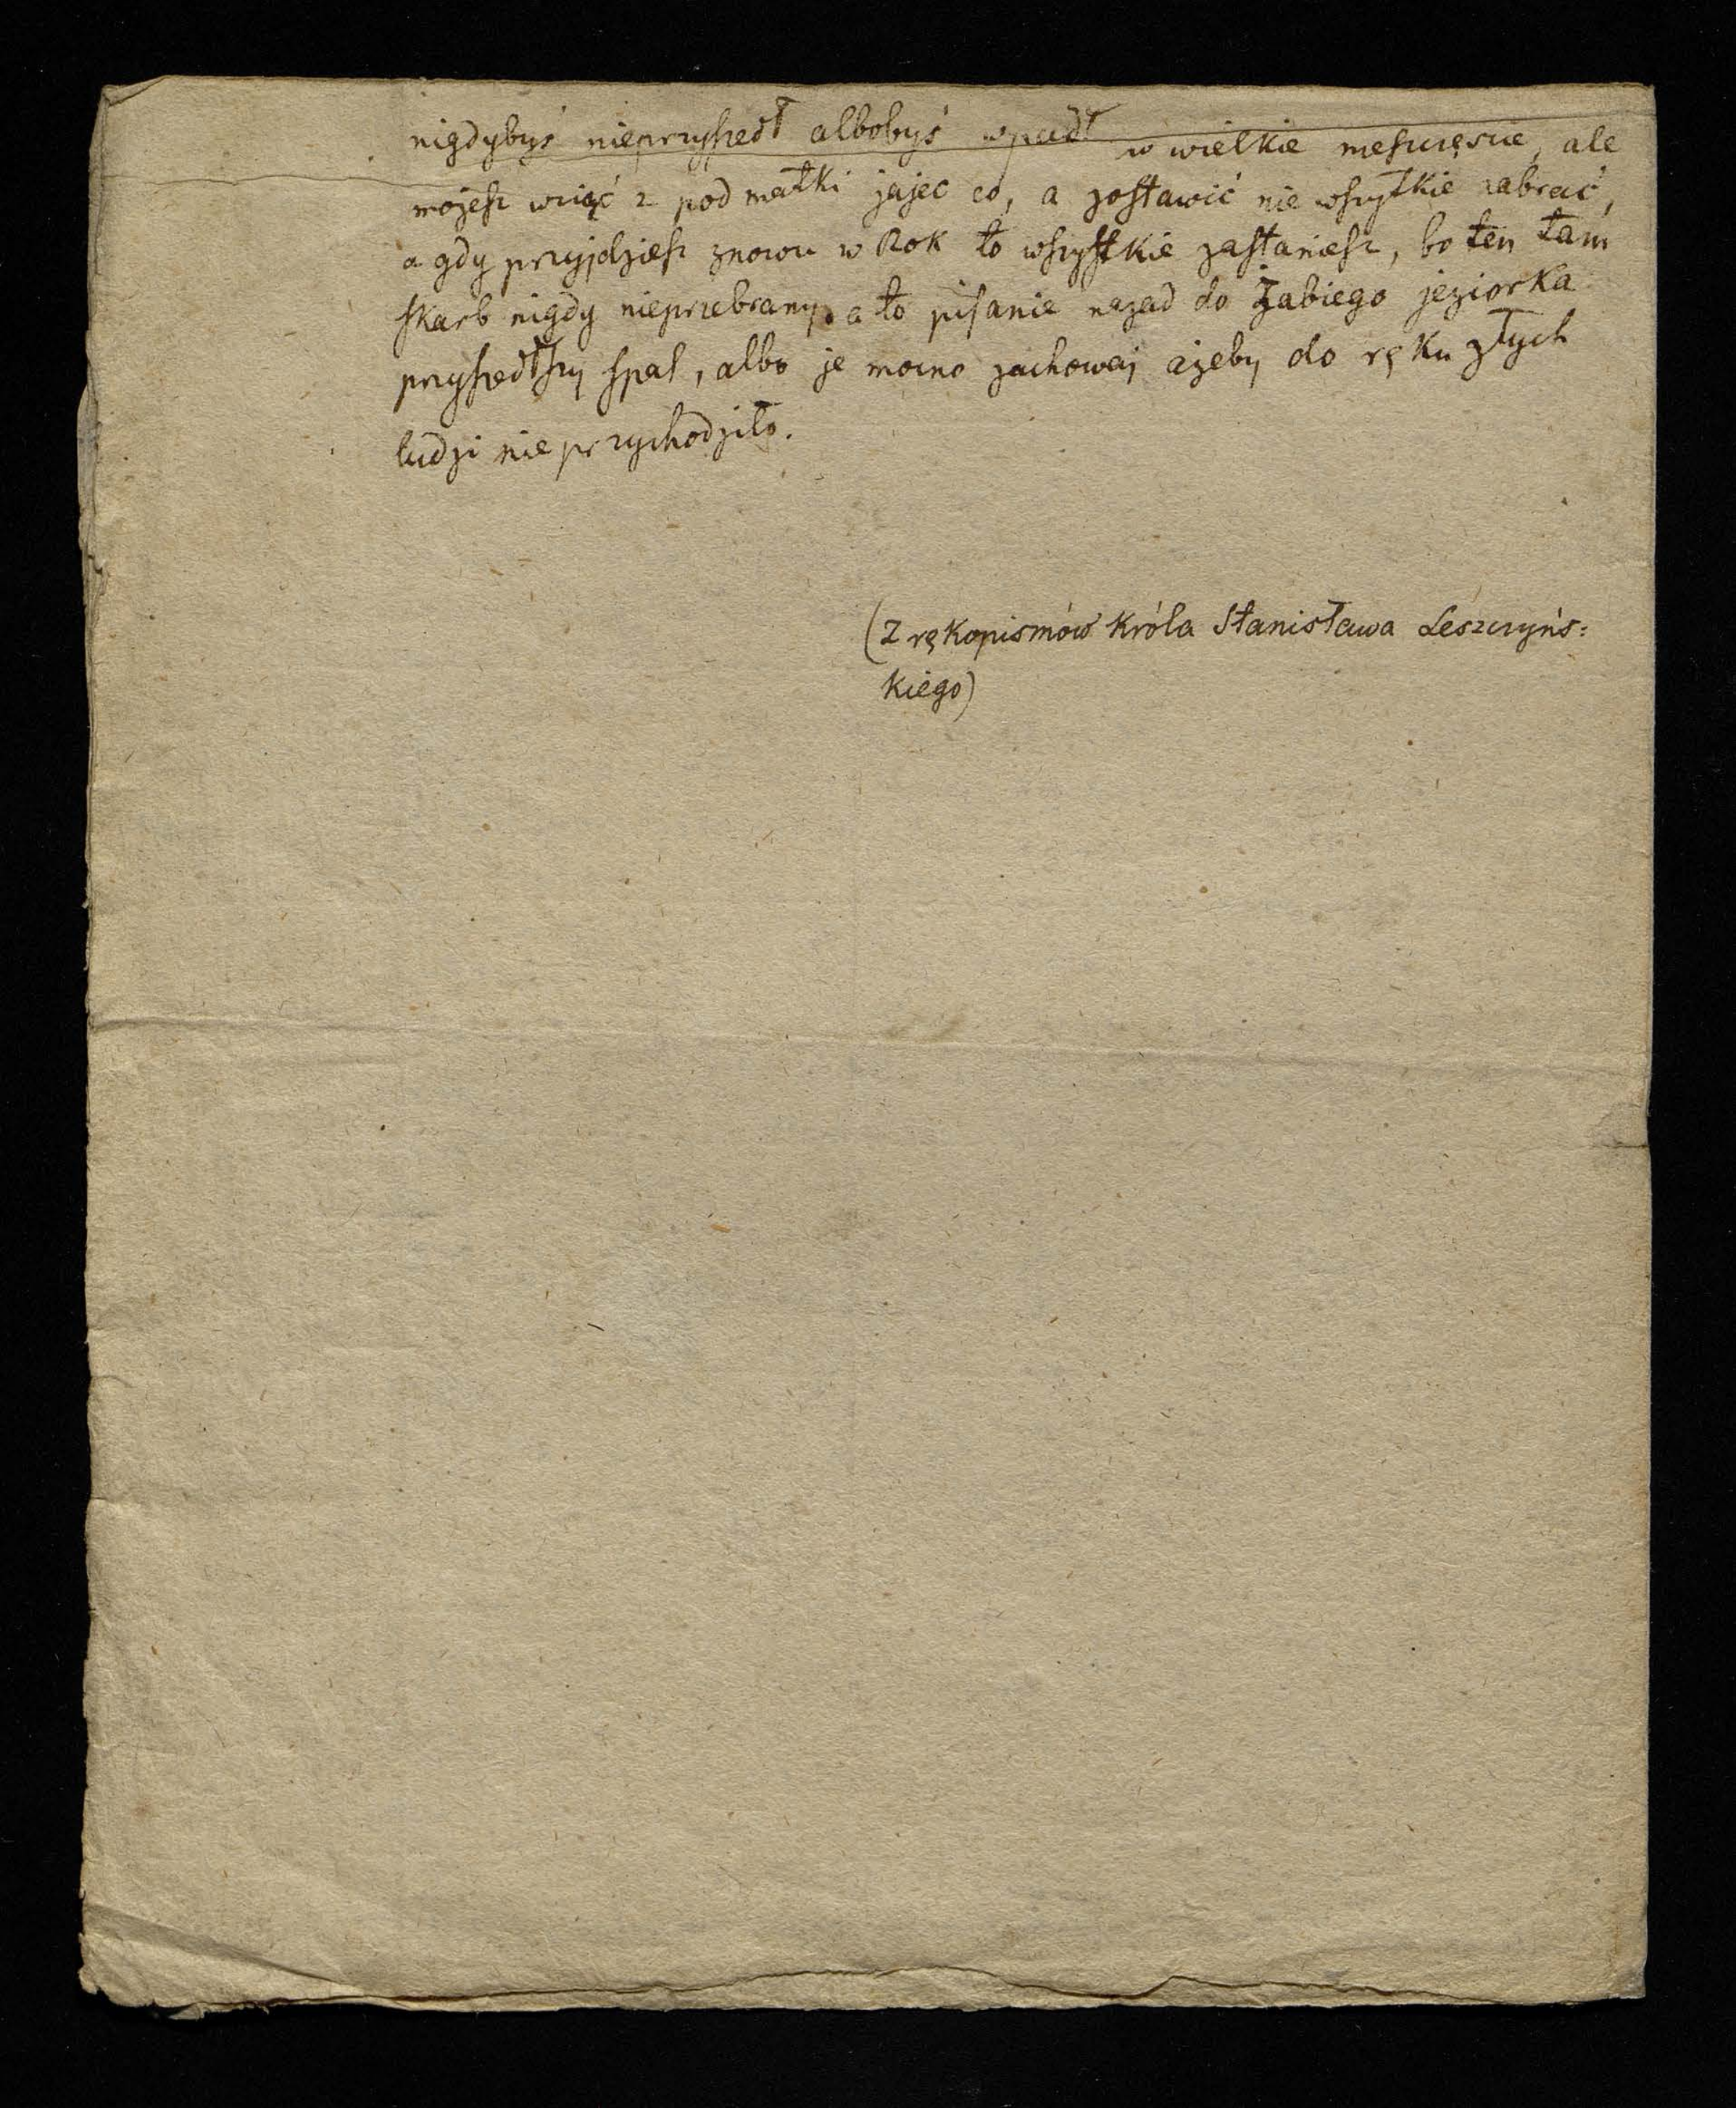 nigdybyś nieprzyszedł albobyś wpadł w wielkie nieszczęscie, ale
możesz wziąć z pod matki jajec co, a zostawić nie wszytkie zabrać,
a gdy przyjdziesz znowu w Rok to wszystkie zastaniesz, bo ten tam
skarb nigdy nieprzebrany, a to pisanie nazad do Żabiego jeziorka
przyszedłszy spal, albo je mocno zachowaj ażeby do ręku złych
ludzi nie przychodziło.
(Z rękopismów Króla Stanisława Leszczyńs=
kiego)